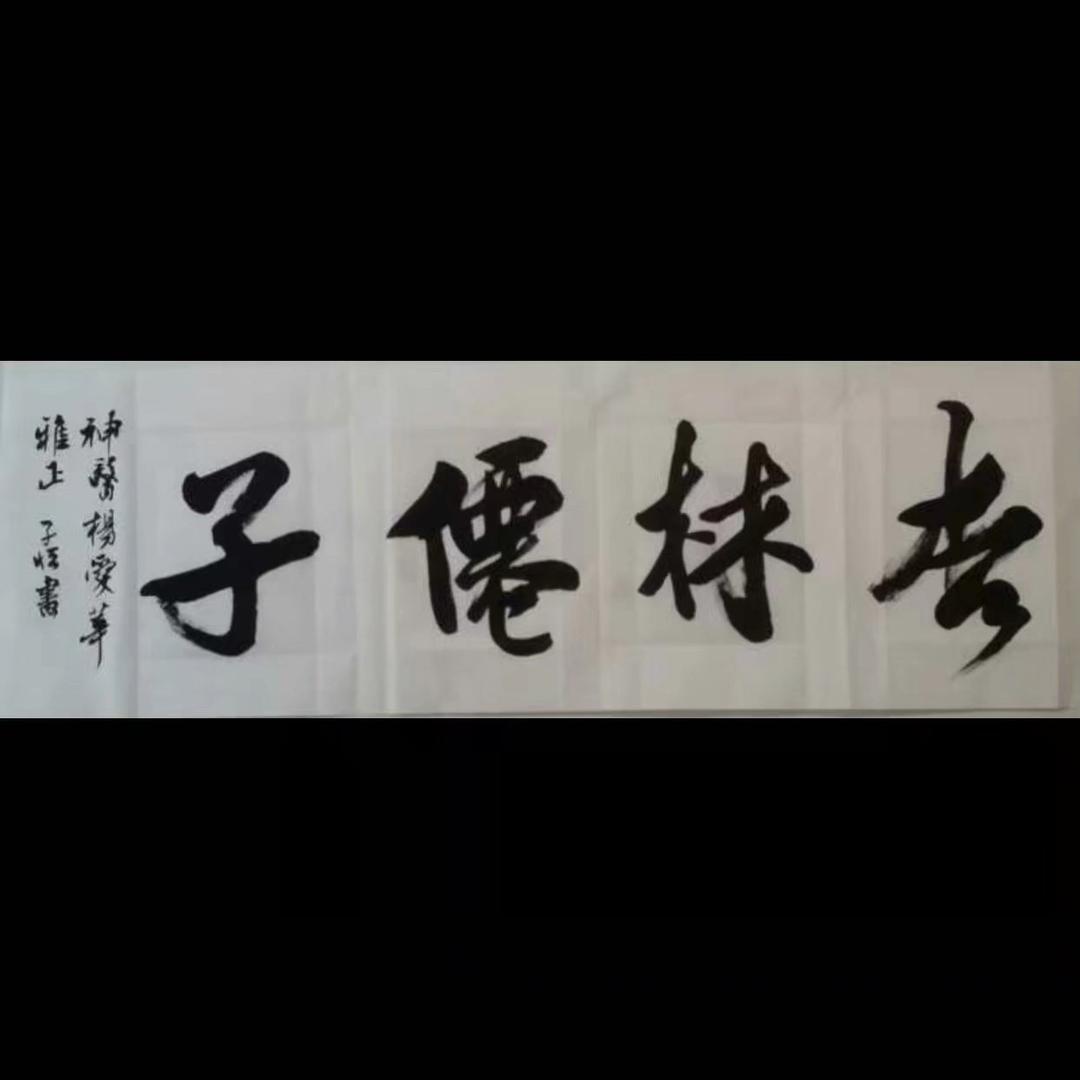 杏林僊子
神醫楊愛華
雅正 子恒書